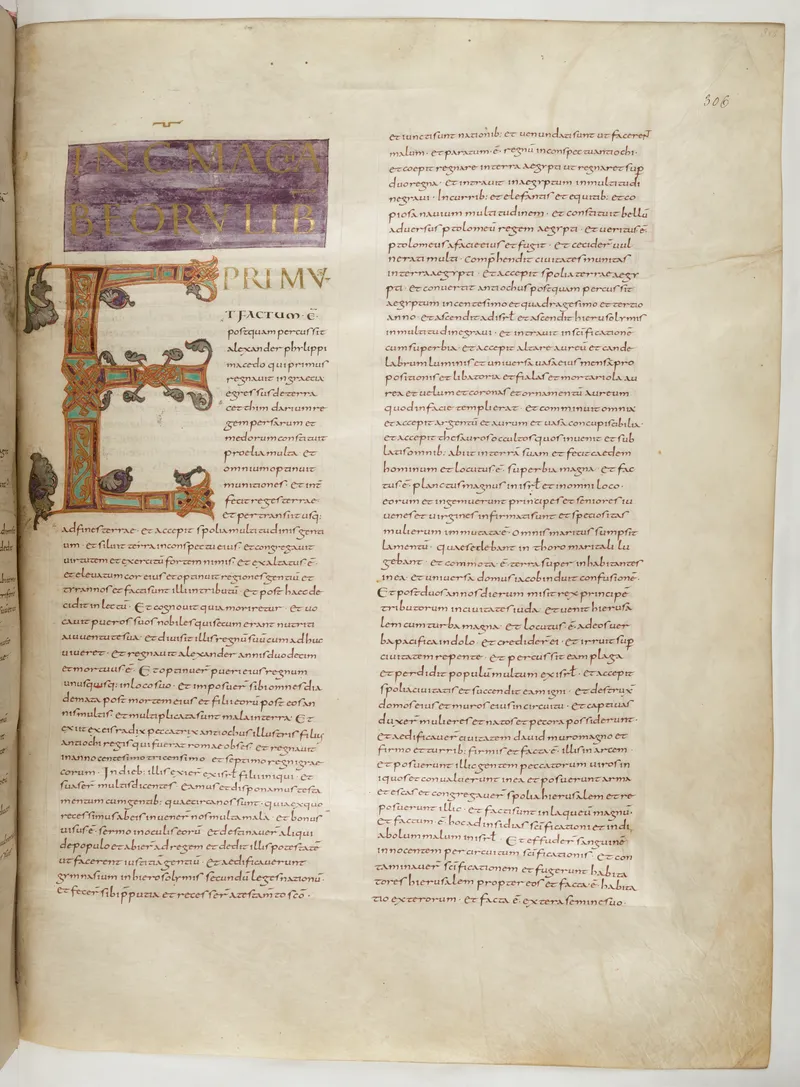 306
INC MACA
BEORV LIB
PRIMV
ET FACTUM · ē
postquam percussit
alexander philippi
macedo qui primus
regnauit in graecia
egressus de terra
cetthim darium re
gem persarum et
medorum constituit
proelia multa et
omnium optinuit
munitiones · et int̄
fecit reges terrae ·
et pertransiit usq:
ad fines terrae · et accepit spolia multitudinis genti
um · et siluit terra in conspectu eius · et congregauit
uirtutem et exercitū fortem nimis · et exaltatus ē
et eleuatum cor eius et optinuit regiones gentiū et
tyrannos et facti sunt illi in tributū · et post haec de
cidit in lectū · Et cognouit quia moreretur · Et uo
cauit pueros suos nobiles qui secum erant nutriti
a iuuentute sua · et diuisit illis regnū suū cum adhuc
uiueret · et regnauit alexander annis duodecim
et mortuus ē · Et optinuer̄ pueri eius regnum
unusquisq: in loco suo · et imposuer̄ sibi omnes dia
demata post mortem eius et filii eorū post eos an
nis multis et multiplicata sunt mala in terra · Et
exiit ex eis radix peccatrix antiochus illustris filius
antiochi regis qui fuerat romae obses et regnauit
in anno centesimo tricensimo · et septimo regni grae
corum · In dieb: illis exier̄ ex isr̄l filii iniqui · et
suaser̄ multis dicentes · Eamus et disponamus testa
mentum cum gentib: quae circa nos sunt · quia ex quo
recessimus ab eis inuener̄ nos multa mala · et bonus
uisus ē sermo in oculis eorū · et destinauer̄ aliqui
de populo et abier̄ ad regem et dedit illis potestatē
ut facerent iustitiā gentiū · et aedificauerunt
gymnasium in hierosolymis secundū leges nationū
et fecer̄ sibi p̄putia et recesser̄ a testam̄to sc̄o ·
et iuncti sunt nationib: et uenundati sunt ut facerent
malum · et paratum ē · regnū in conspectu antiochi ·
et coepit regnare in terra aegypti ut regnaret sup
duo regna · et intrauit in aegyptum in multitudi
ne graui · In currib: et elefantis et equitib: et co
piosa nauium multitudinem · et constituit bellū
aduersus ptolomeū regem aegypti · et ueritus ē
ptolomeus a facie eius et fugit · et cecider̄ uul
nerati multi · Comp̄hendit ciuitates munitas
in terra aegypti · et accepit spolia terrae aegy
pti · et conuertit antiochus postquam percussit
aegyptum in centesimo et quadragesimo et tertio
anno · et ascendit ad isr̄l et ascendit hierusolymis
in multitudine graui · et intrauit in sc̄ificationē
cum superbia · et accepit altare aureū et cande
labrum luminis et uniuersa uasa eius mensā pro
positionis et libatoria et fialas et mortariola au
rea et uelum et coronas et ornamentū aureum
quod in facie templi erat · et comminuit omnia
et accepit argentū et aurum et uasa concupiscibilia ·
et accepit thesauros occultos quos inuenit et sub
latis omnib: abiit in terrā suam et fecit caedem
hominum et locutus ē · superbia magna · et fac
tus ē · planctus magnus in isr̄l et in omni loco ·
eorum et ingemuerunt principes et seniores iu
uenes et uirgines infirmati sunt et speciositas
mulierum immutata ē · omnis maritus sumpsit
lamentū · quae sedebant in thoro maritali lu
gebant · et commota ē · terra super inhabitantes
in ea · et uniuersa domus iacob induit confusionē ·
Et post duos annos dierum misit rex principē
tributorum in ciuitates iuda · et uenit hierusa
lem cum turba magna · et locutus ē · ad eos uer
ba pacifica in dolo · et crediderer̄ ei · et irruit sup
ciuitatem repente · et percussit eam plaga
et perdidit populū multum ex isr̄l · et accepit
spolia ciuitatis et succendit eam igni · et destrux̄
domos eius et muros eius in circuitu · et captiuas
duxer̄ mulieres et natos et pecora possiderunt ·
et aedificauer̄ ciuitatem dauid muro magno et
firmo et turrib: firmis et facta ē · illis in arcem ·
et posuerunt illic gentem peccatorum uiros in
iquos et conualuerunt in ea et posuerunt arma
et escas et congregauer̄ spolia hierusalem et re
posuerunt illic · et facti sunt in laqueū magnū ·
et factum ē · hoc ad insidias sc̄ificationi et in di
abolum malum in isr̄l · Et effuder̄ sanguinē
innocentem per circuitum sc̄ificationis · et con
taminauer̄ sc̄ificationem et fugerunt habita
tores hierusalem propter eos et facta ē · habita
tio exterorum · et facta ē · extera semini suo ·